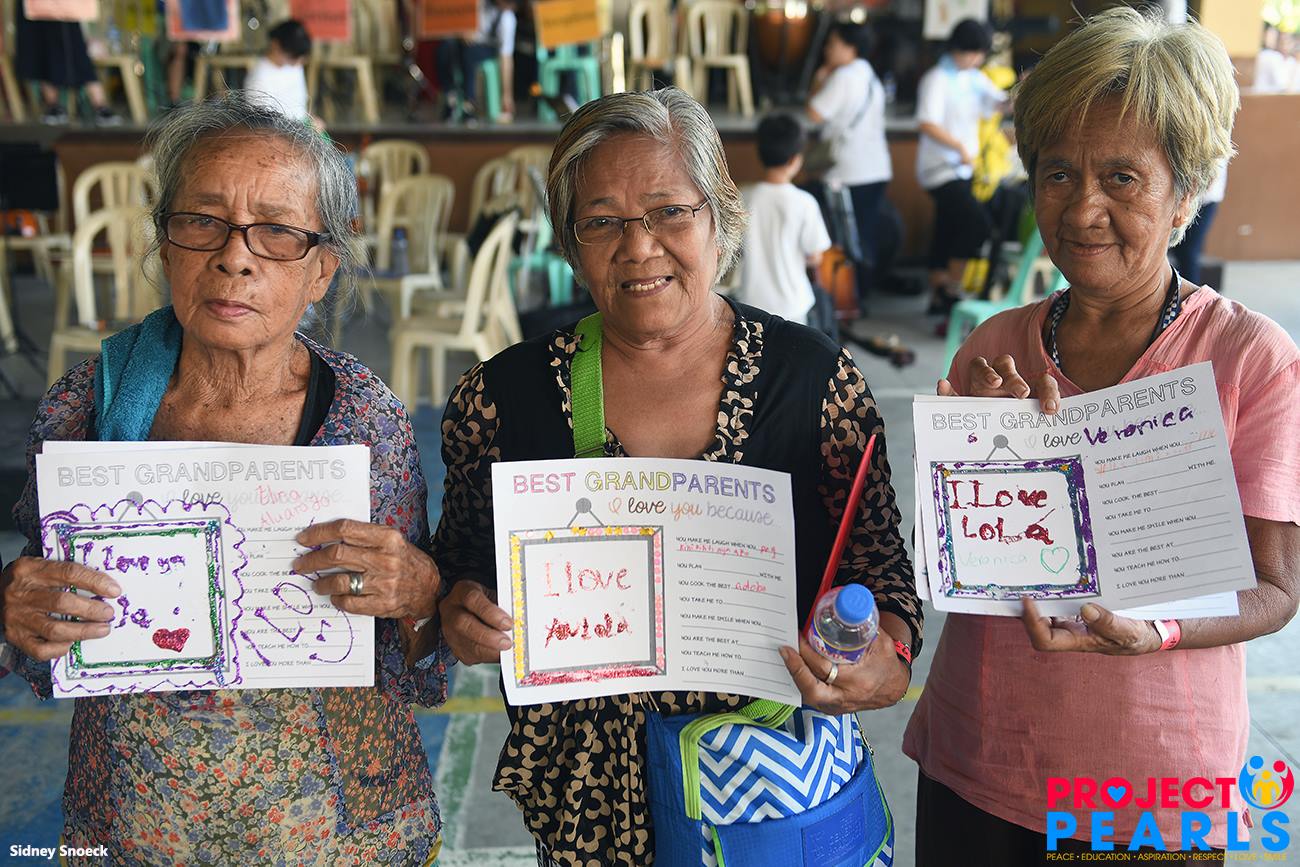 BEST GRANDPARENTS
I love you
YOU MAKE ME LAUGH WHEN
YOU PLAN
YOU COOK THE BEST
YOU TAKE ME TO
YOU MAKE ME SMILE
YOU ARE THE BEST
YOU TEACH ME HOW TO
I LOVE YOU MORE THAN
I love ya
BEST GRANDPARENTS
I love you because...
YOU MAKE ME LAUGH WHEN YOU
YOU PLAN WITH ME.
YOU COOK THE BEST adobo
YOU TAKE ME TO
YOU MAKE ME SMILE WHEN YOU
YOU ARE THE BEST AT
YOU TEACH ME HOW TO
I LOVE YOU MORE THAN
I love
BEST GRANDPARENTS
I love Veronica
YOU MAKE ME LAUGH WHEN YOU
YOU PLAN WITH ME.
YOU COOK THE BEST
YOU TAKE ME TO
YOU MAKE ME SMILE WHEN YOU
YOU ARE THE BEST AT
YOU TEACH ME HOW TO
I LOVE YOU MORE THAN
I Love
LoLa
Veronica
PROJECT
PEARLS
PEACE • EDUCATION • ASPIRATION • RESPECT • LOVE • SMILE
Sidney Snoeck